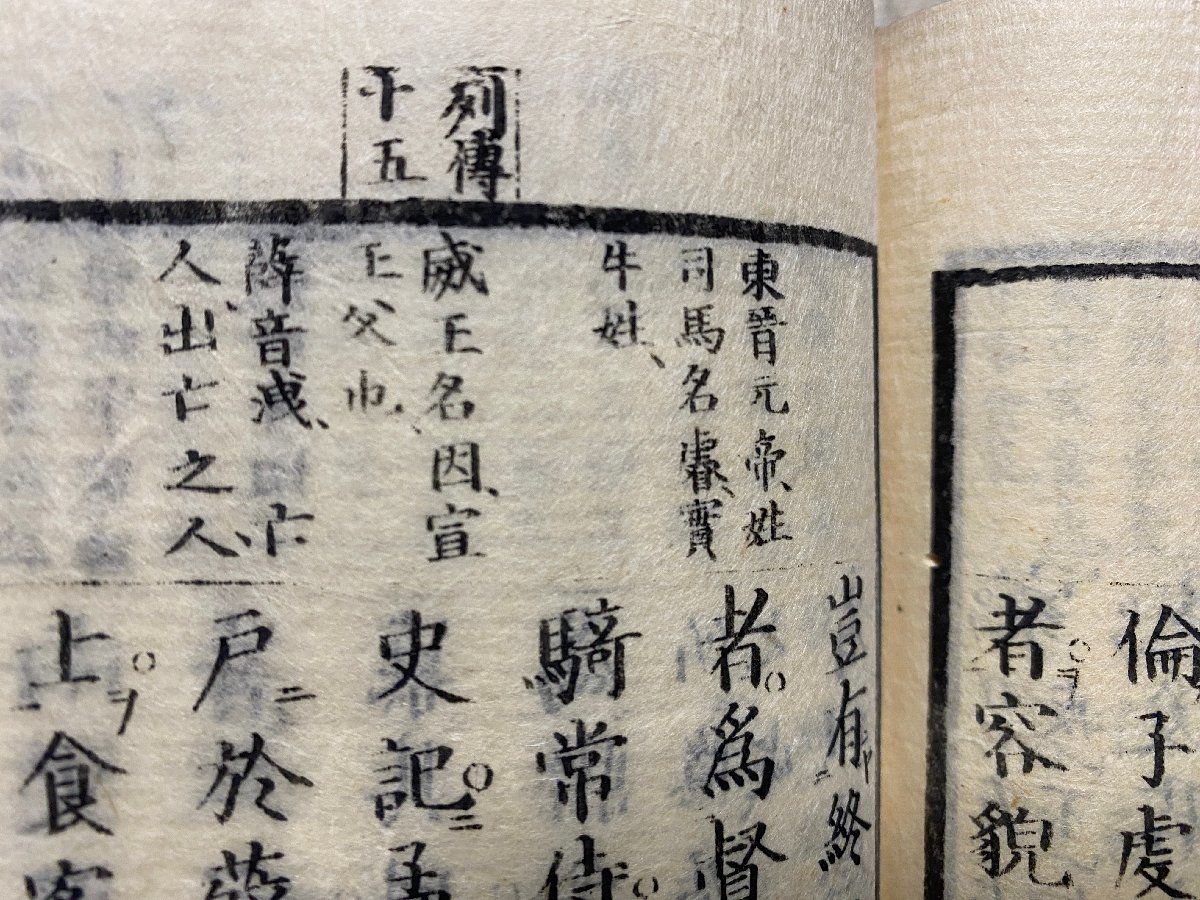 倫子處
者容貌
列傳
十五
東晉元帝姓
司馬名睿實
牛姓
威王名因宣
王父也
薛音洩亡
人出亡之人
豈有終
者為督
騎常侍
史記孟
戸於薛
上食客